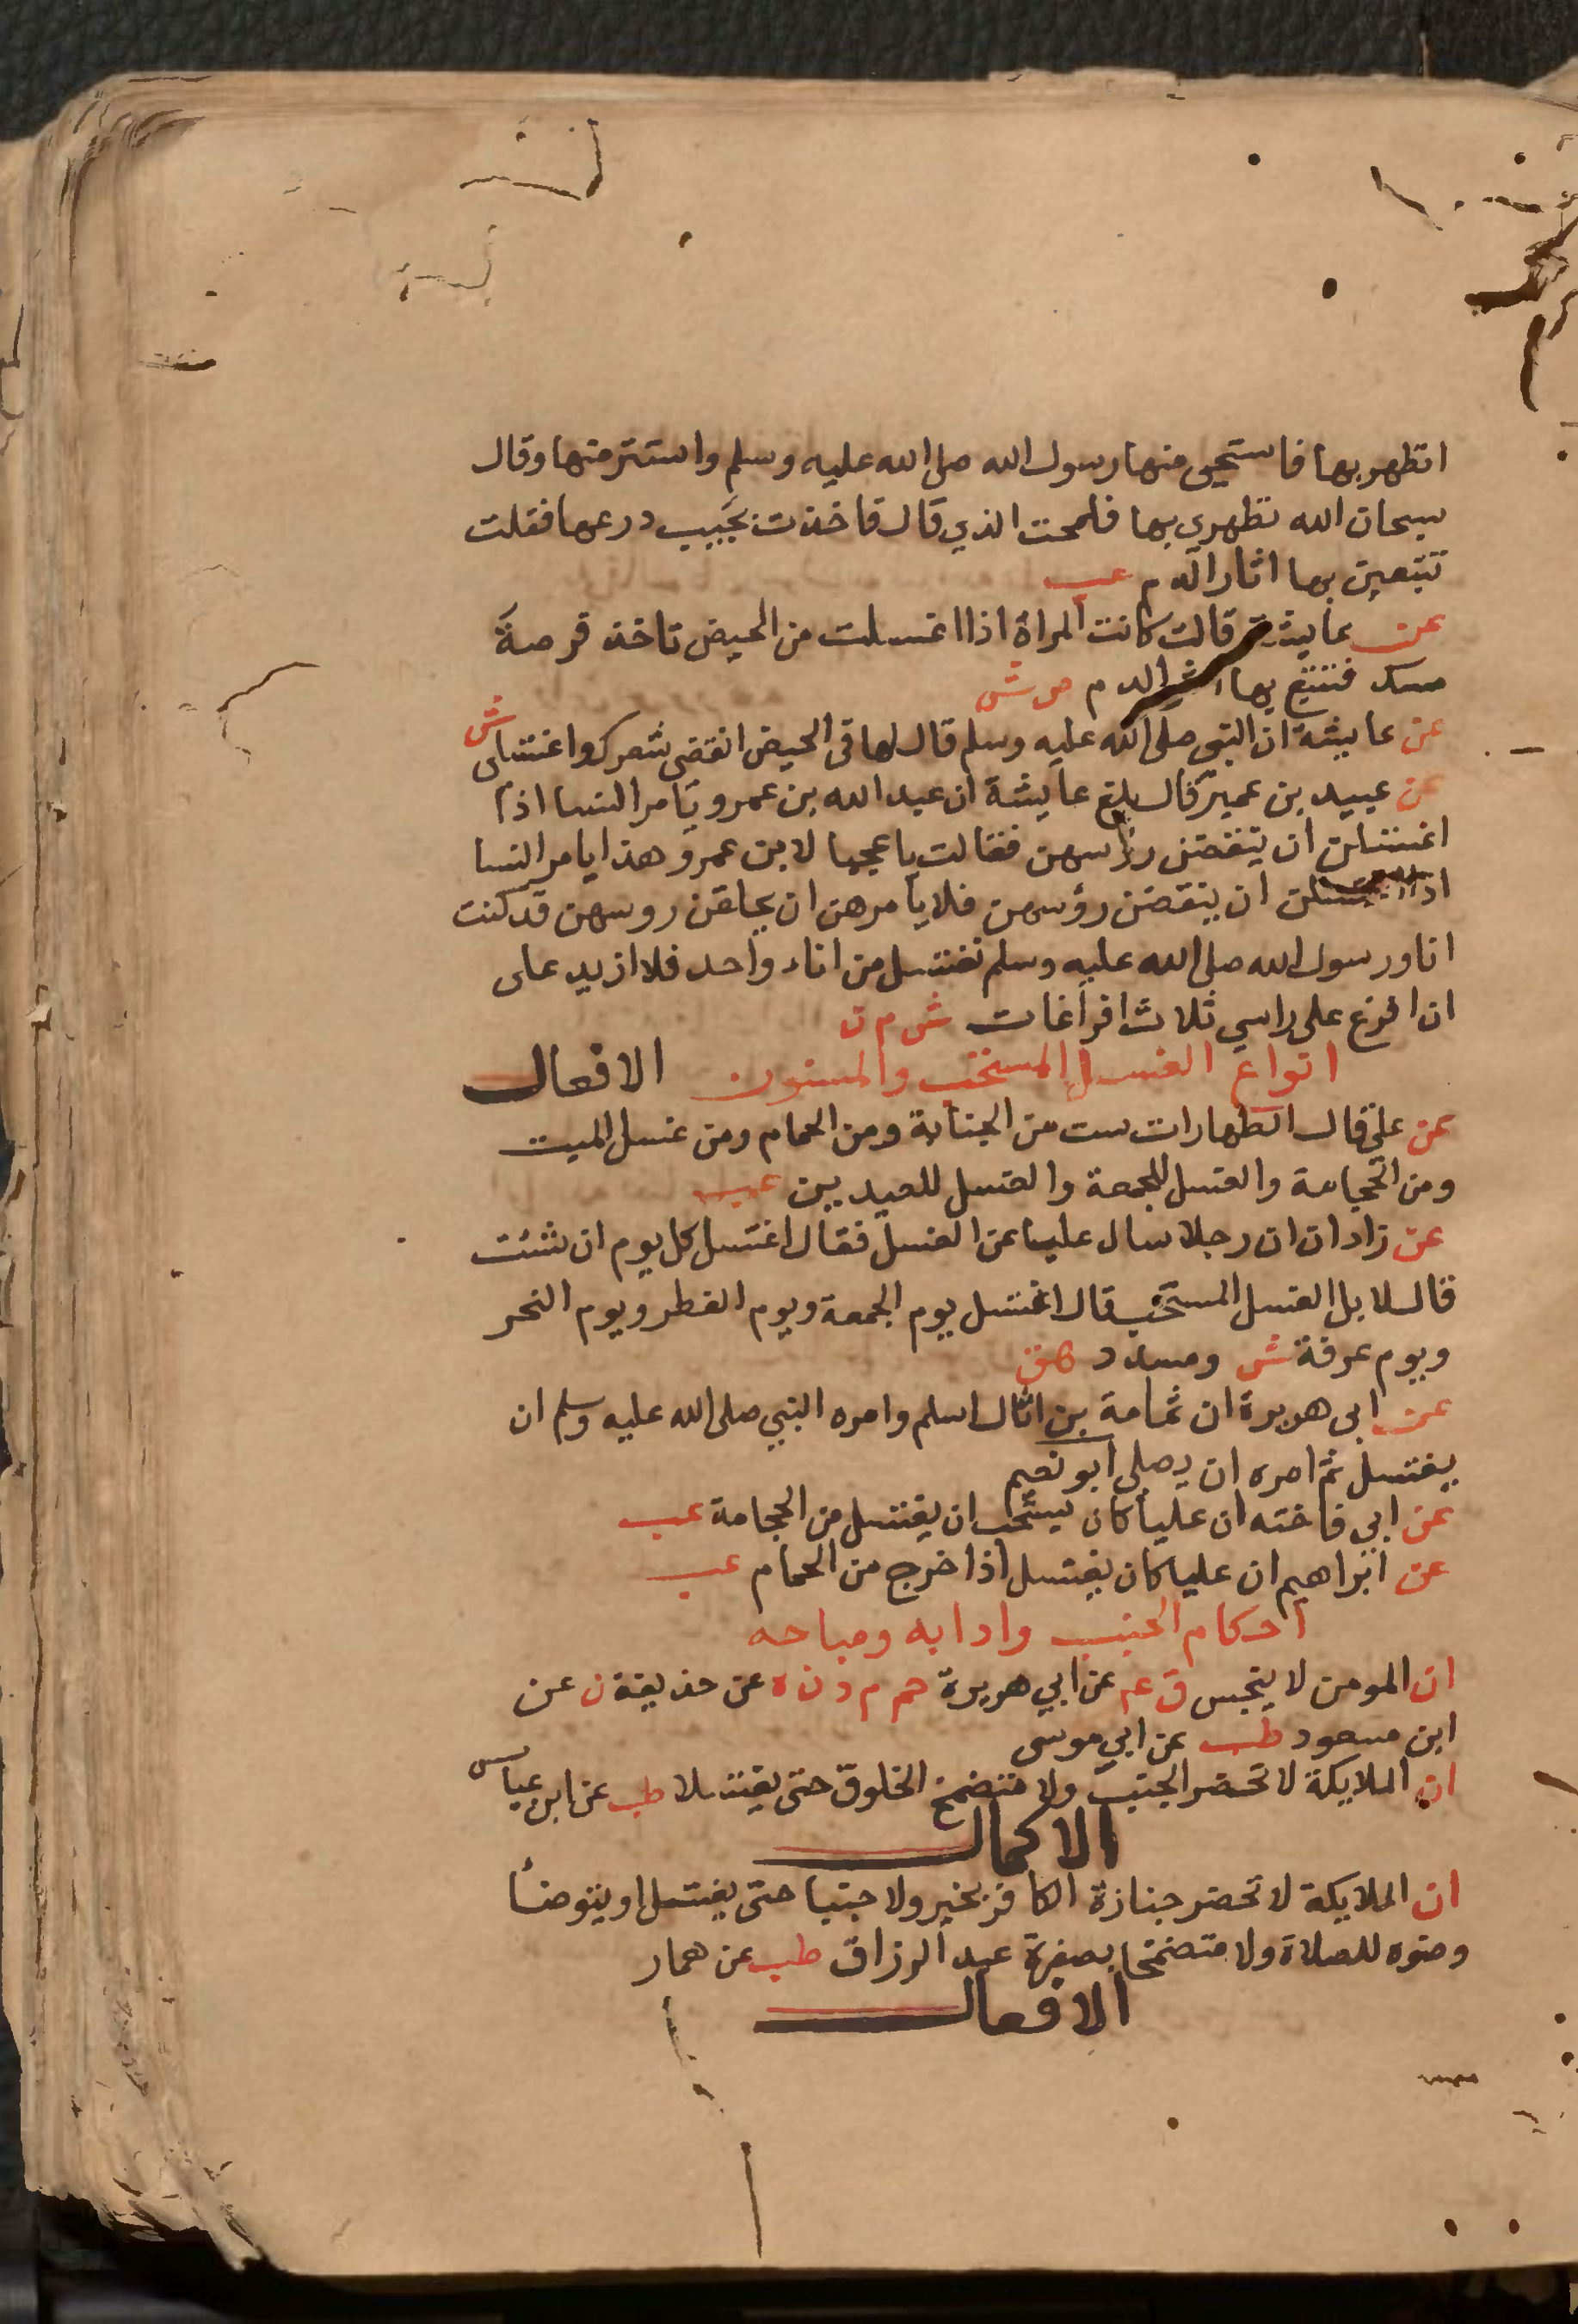 اتطهر بها فاستحيى منها رسول الله صلى الله عليه وسلم واستتر منها وقال
سبحان الله تطهري بها فلمحت الذي قال فاخذت بجيب درعها فقلت
تتبعين بها اثار الدم عب
عن عايشة قالت كانت المراة اذا اغتسلت من الحيض تاخذ فرصة
مسك فتتبع بها اثر الدم ص ش
عن عايشة ان النبي صلى الله عليه وسلم قال لها في الحيض انقضي شعرك واغتسلي ش
عن عبيد بن عمير قال بلغ عايشة ان عبد الله بن عمرو يامر النسا اذا
اغتسلن ان ينقضن رؤسهن فقالت يا عجبا لابن عمرو هذا يامر النسا
اذا اغتسلن ان ينقضن رؤسهن فلا يامرهن ان يحلقن روسهن قد كنت
انا ورسول الله صلى الله عليه وسلم نغتسل من اناء واحد فلا ازيد على
ان افرغ على راسي ثلاث افراغات ش م ن
انواع الغسل المستحب والمسنون الافعال
عن علي قال الطهارات ست من الجنابة ومن الحمام ومن غسل الميت
ومن الحجامة والغسل للجمعة والغسل للعيدين عب
عن زادان ان رجلا سال عليا عن الغسل فقال اغتسل كل يوم ان شئت
قال لا بل الغسل المستحب قال اغتسل يوم الجمعة ويوم الفطر ويوم النحر
ويوم عرفة ش ومسدد هق
عن ابي هريرة ان ثمامة بن اثال اسلم وامره النبي صلى الله عليه وسلم ان
يغتسل ثم امره ان يصلي ابو نعيم
عن ابي فاخته ان عليا كان يستحب ان يغتسل من الحجامة عب
عن ابراهيم ان عليا كان يغتسل اذا خرج من الحمام عب
احكام الجنب وادابه ومباحه
ان المومن لا ينجس ق ع عن ابي هريرة حم م د ن ه عن حذيفة ن عن
ابن مسعود طب عن ابي موسى
ان الملايكة لا تحضر الجنب ولا متضمخ الخلوق حتى يغتسلا طب عن ابن عباس
الاكمال
ان الملايكة لا تحضر جنازة الكافر بخير ولا جنبا حتى يغتسل او يتوضأ
وضوه للصلاة ولا متضمخا بصفرة عبد الرزاق طب عن عمار
الافعال